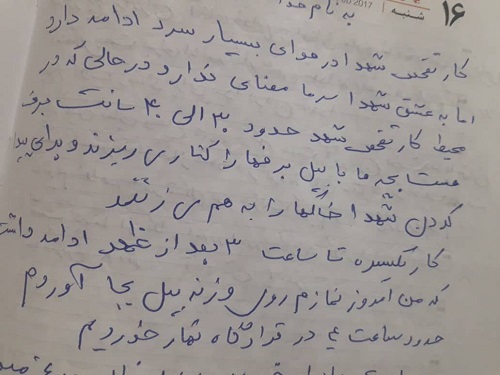 ۱۶ شنبه 2017
به نام خدا
کار تفحص شهدا در هوای بسیار سرد ادامه دارد
اما به عشق شهدا سرما معنای ندارد در حالی که در
محیط کار تفحص شهد حدود ۳۰ الی ۴۰ سانت برف
هست بچه ما با بیل برفها را کناری ریزند و برای پیدا
کردن شهدا خاکها را به هم ی زنند
کار یکسره تا ساعت ۳ بعد از ظهر ادامه داشت
که من امروز نمازم روی وزنه بیل بجا آوردم
حدود ساعت ۴ در قرارگاه نهار خوردیم